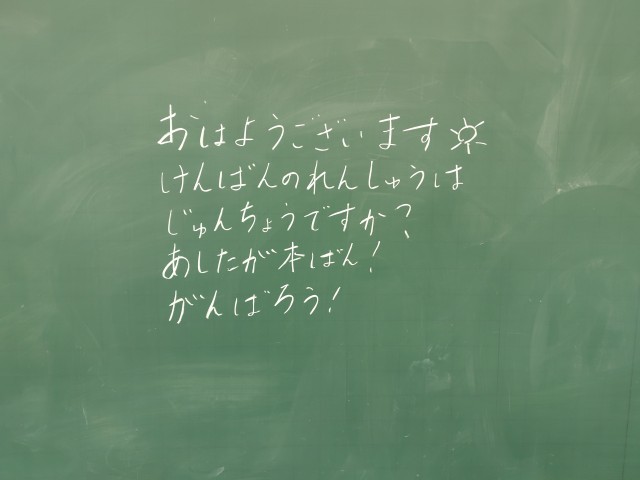 おはようございます☼
けんばんのれんしゅうは
じゅんちょうですか？
あしたが本ばん！
がんばろう！